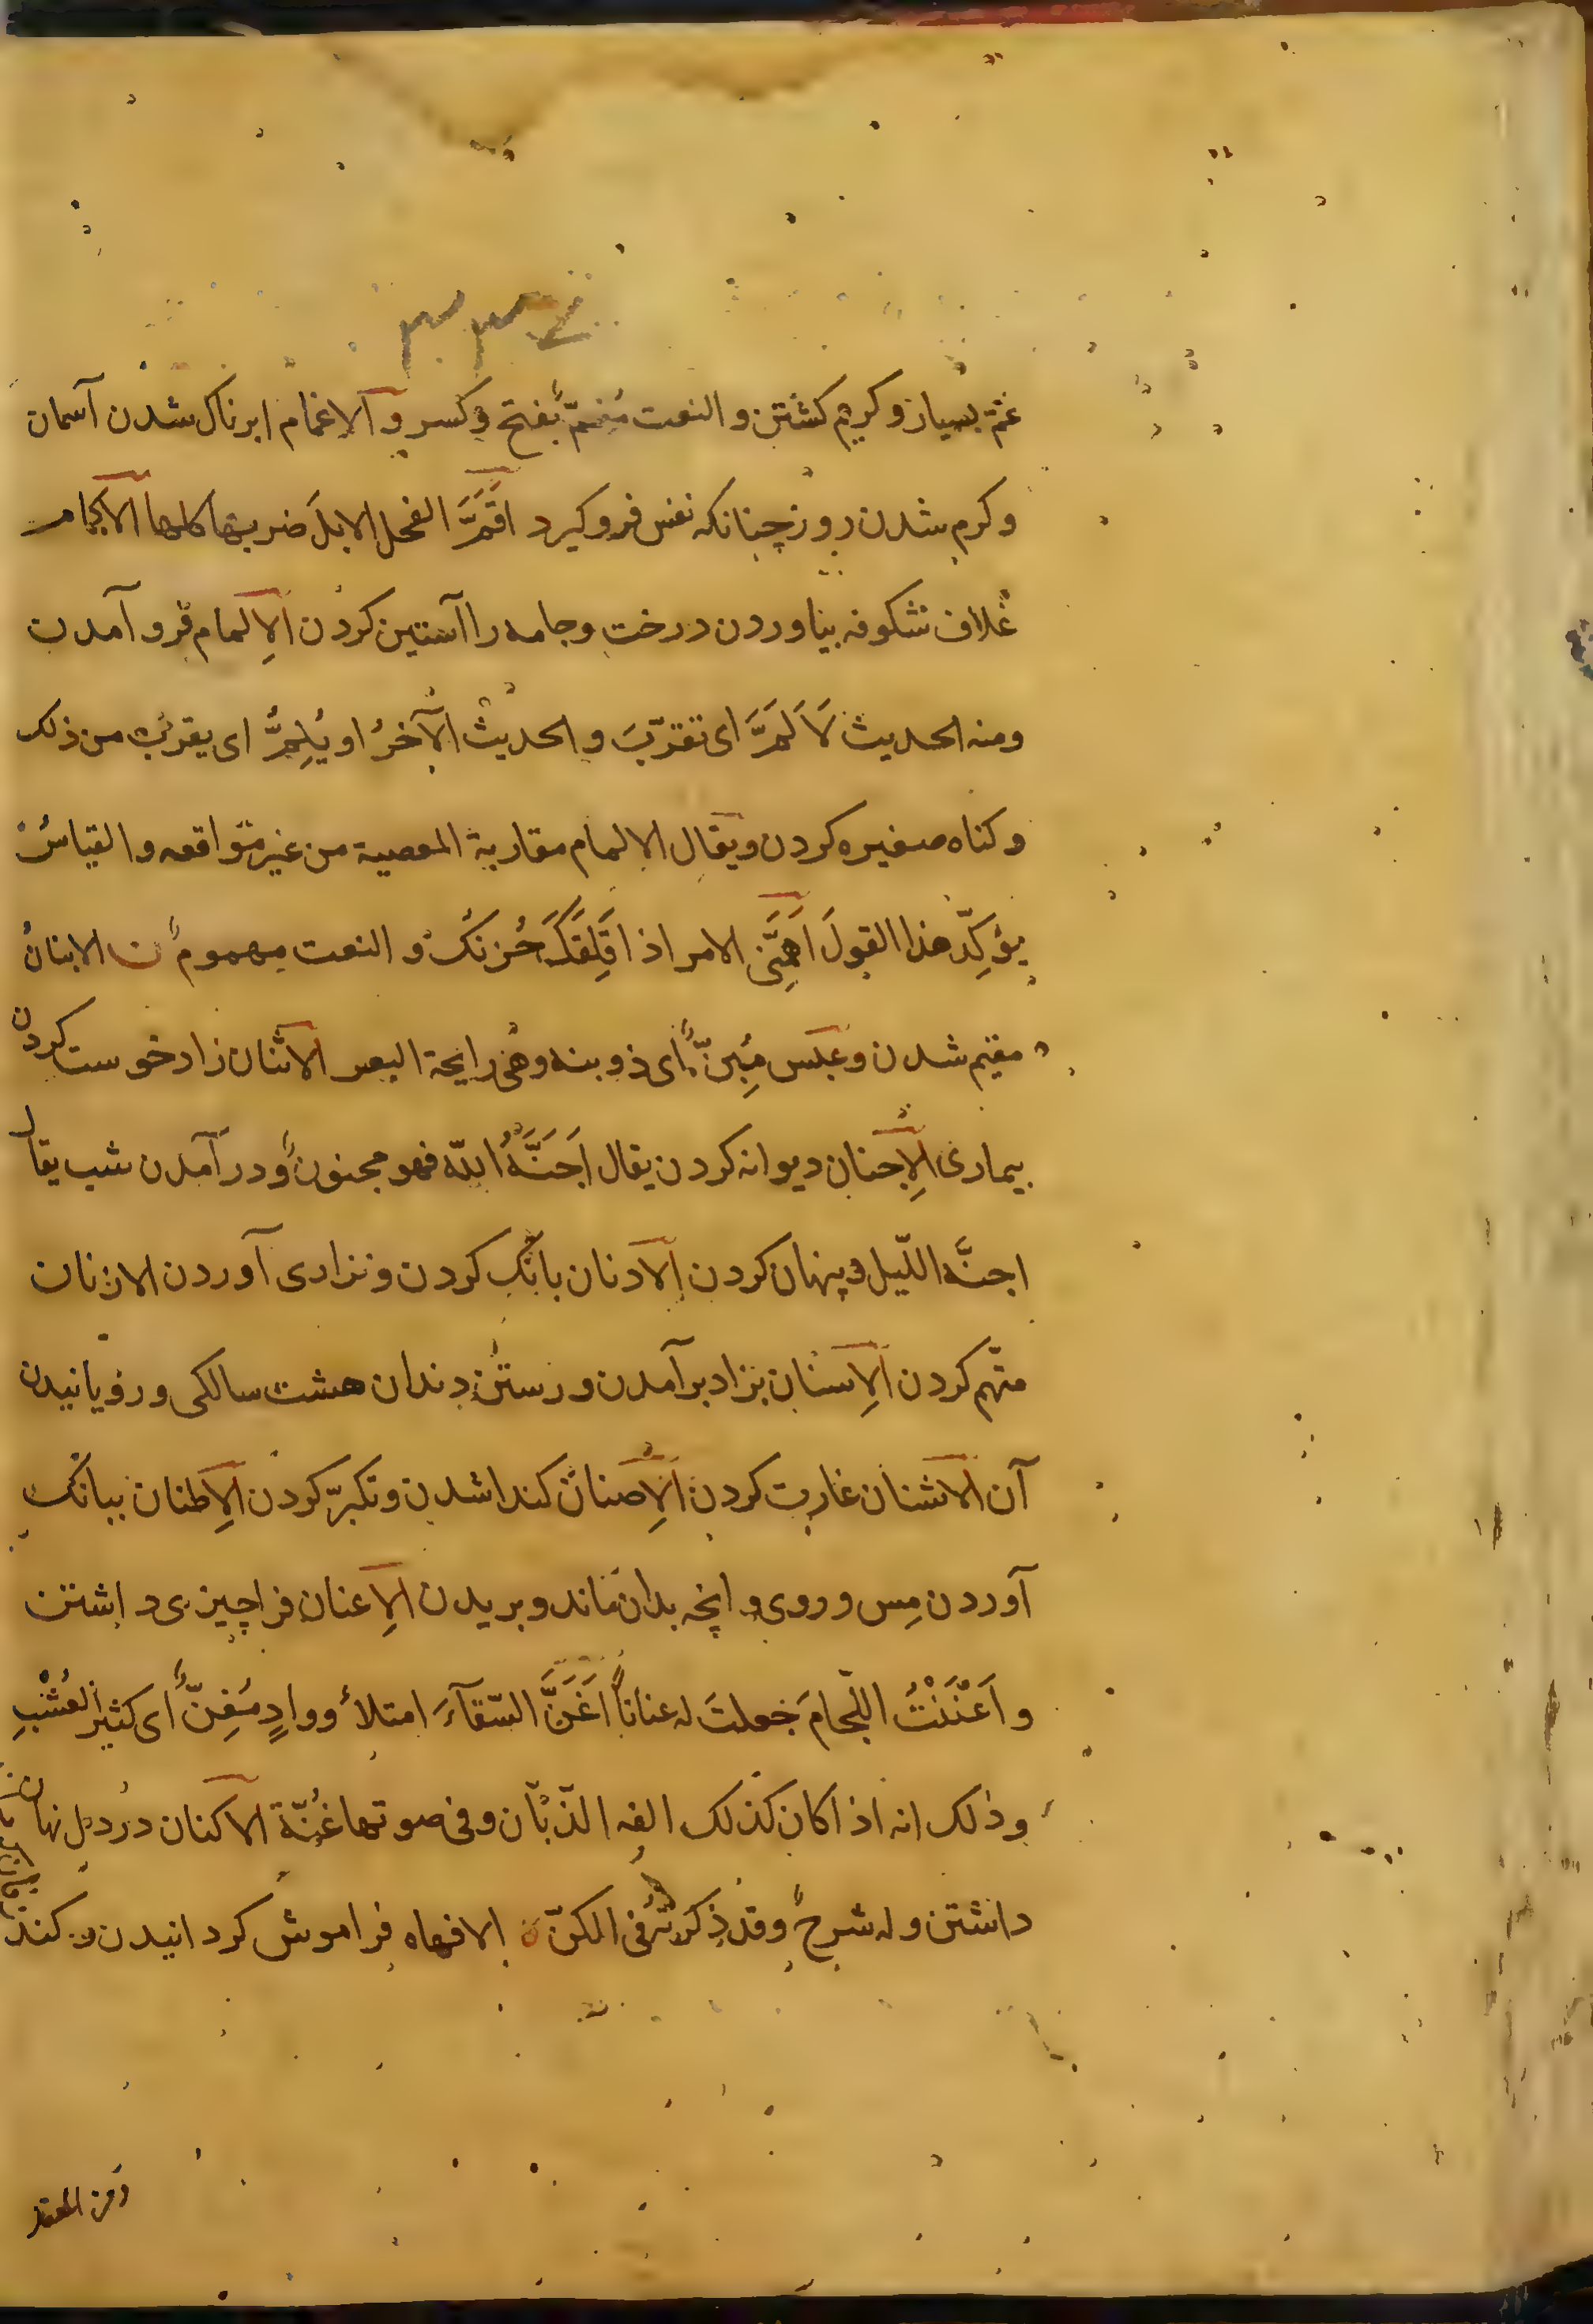 عمّ بسیار و کریم کشتن و النعت مُعِمٌّ بفتح و کسر و الاغمام ابرناک شدن آسمان
و کرم شدن روز چنانکه نفس فرو کیرد اَقَمَّ الفحل الابلَ ضربها کلها الاکمام
غلاف شکوفه بیاوردن درخت و جامه را آستین کردن اَلاِلمام فرو آمدن
و منه الحدیث لَاَلَمَّ ای تقرّبَ و الحدیث الآخرُ او یُلِمُّ ای یقربُ من ذلک
و کناه صغیره کردن و یقال الالمام مقاربة المعصیة من غیر مواقعه و القیاسُ
یؤکِّد هذا القولَ اَهَمَّنی الامر اذا قلقَکَ حُزنک و النعت مهمومٌ ن الابنان
مقیم شدن و عبکس مُبِنٌّ ای ذو بنه وهی رایحة البعر الاثنان زاد خوست کردن
بیماری اَلاِجنان دیوانه کردن یقال اَجَنَّهُ اللّه فهو مجنونٌ و در آمدن شب یقال
اجنَّه اللّیل و پنهان کردن الادنان بانک کردن و نزاری آوردن الازنان
متّهم کردن الاِسنان بزاد برآمدن و رستن دندان هشت سالکی و رویانیدن
آن الاشنان غارت کردن الاِصنان کندا شدن و تکبّر کردن الاِطنان ببانک
آوردن مِس و روی و انچه بدان ماند و بریدن الاِعنان فرا چیزی داشتن
و اَعْنَنْتُ اللّجامَ جعلتَ له عناناً اَغَنَّ السّقآءَ امتلأ و وادٍ مُغِنٌّ ای کثیر العُشْبِ
و ذلک انه اذا کان کذلک الفه الذبّان و فی صوتها غُنّة الاکنان در دل نهان
داشتن و له شرحٌ و قد ذکرته فی الکنّ ه الافهاه فراموش کردانیدن و کند